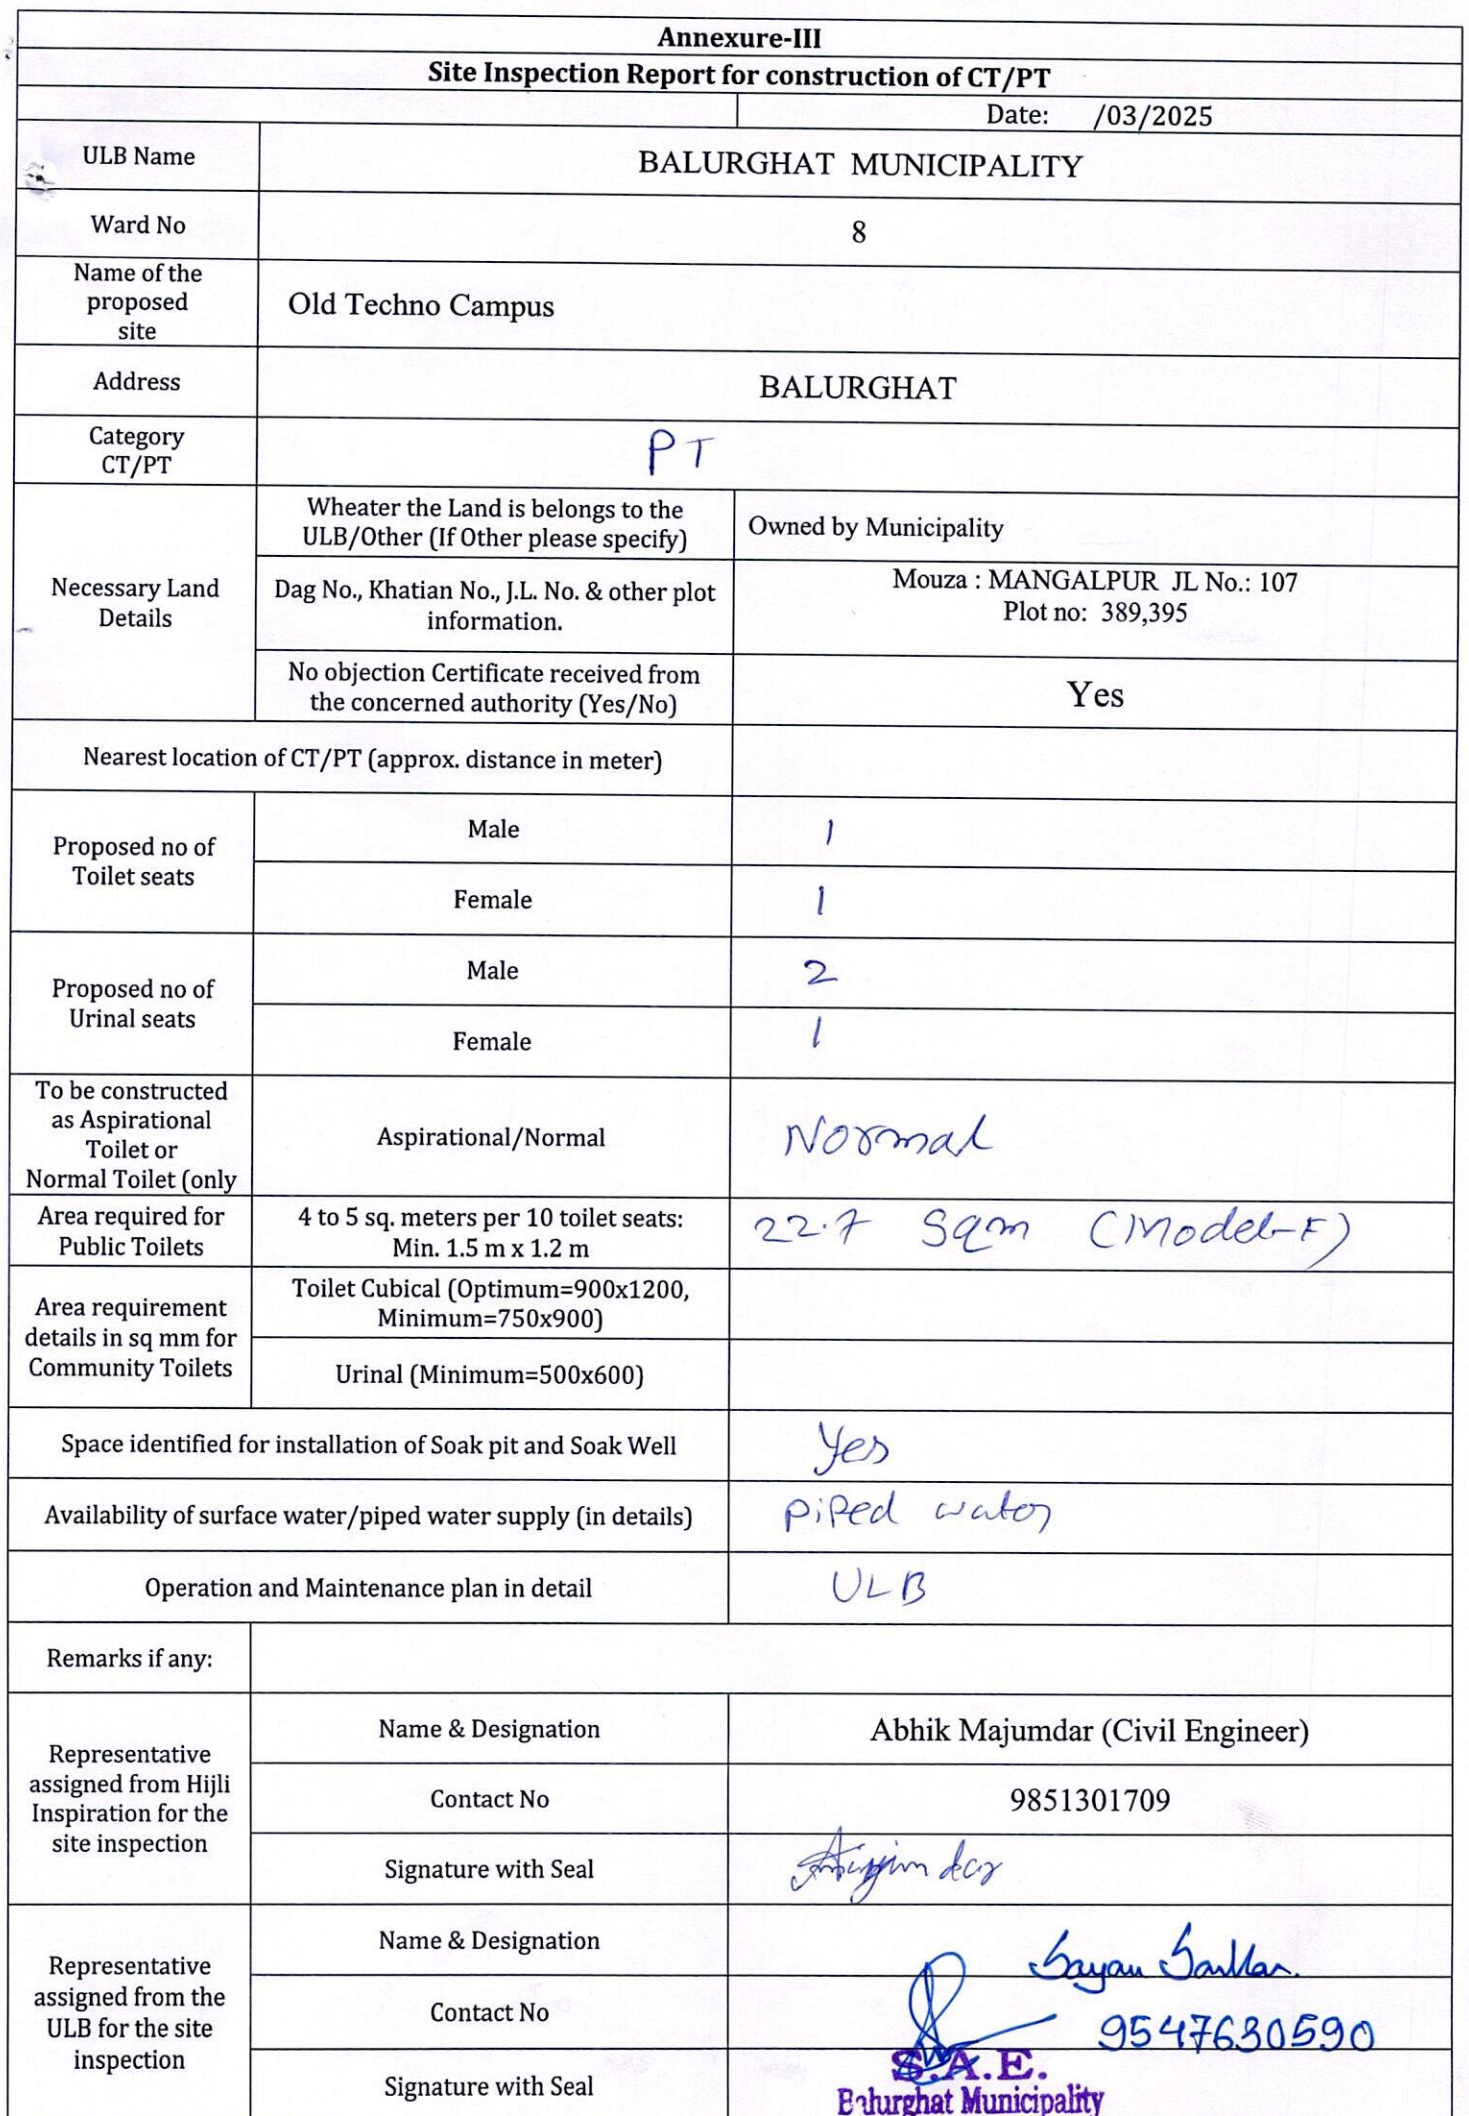 Annexure-III
Site Inspection Report for construction of CT/PT
Date: /03/2025
ULB Name
BALURGHAT MUNICIPALITY
Ward No
8
Name of the
proposed
site
Old Techno Campus
Address
BALURGHAT
Category
CT/PT
PT
Necessary Land
Details
Wheater the Land is belongs to the
ULB/Other (If Other please specify)
Owned by Municipality
Dag No., Khatian No., J.L. No. & other plot
information.
Mouza : MANGALPUR JL No.: 107
Plot no: 389,395
No objection Certificate received from
the concerned authority (Yes/No)
Yes
Nearest location of CT/PT (approx. distance in meter)
Proposed no of
Toilet seats
Male
1
Female
1
Proposed no of
Urinal seats
Male
2
Female
1
To be constructed
as Aspirational
Toilet or
Normal Toilet (only
Aspirational/Normal
Normal
Area required for
Public Toilets
4 to 5 sq. meters per 10 toilet seats:
Min. 1.5 m x 1.2 m
22.7 Sqm (Model-F)
Area requirement
details in sq mm for
Community Toilets
Toilet Cubical (Optimum=900x1200,
Minimum=750x900)
Urinal (Minimum=500x600)
Space identified for installation of Soak pit and Soak Well
Yes
Availability of surface water/piped water supply (in details)
Piped water
Operation and Maintenance plan in detail
ULB
Remarks if any:
Representative
assigned from Hijli
Inspiration for the
site inspection
Name & Designation
Abhik Majumdar (Civil Engineer)
Contact No
9851301709
Signature with Seal
Representative
assigned from the
ULB for the site
inspection
Name & Designation
Sayan Sarkar.
Contact No
9547630590
Signature with Seal
S.A.E.
Balurghat Municipality